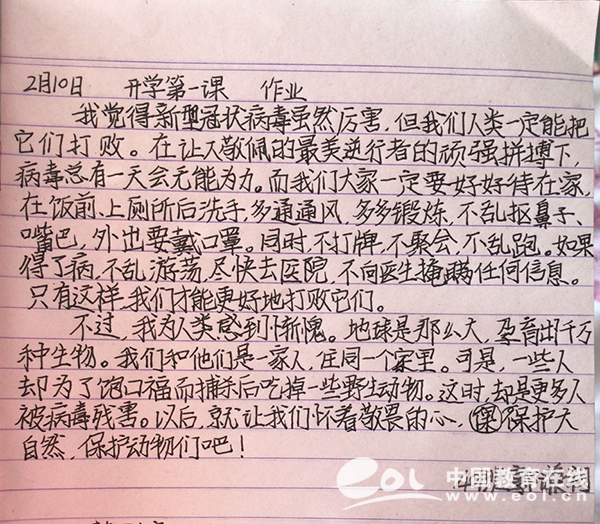 2月10日 开学第一课 作业
我觉得新型冠状病毒虽然厉害,但我们人类一定能把
它们打败。在让人敬佩的最美逆行者的顽强拼搏下,
病毒总有一天会无能为力。而我们大家一定要好好待在家,
在饭前、上厕所后洗手,多通通风,多多锻炼,不乱抠鼻子、
嘴巴,外出要戴口罩。同时,不打牌,不聚会,不乱跑。如果
得了病,不乱游荡,尽快去医院,不向医生掩瞒任何信息。
只有这样,我们才能更好地打败它们。
不过,我为人类感到惭愧。地球是那么大,孕育出千万
种生物。我们和他们是一家人,住同一个家里。可是,一些人
却为了饱口福而捕杀后吃掉一些野生动物。这时,却是更多人
被病毒残害。以后,就让我们怀着敬畏的心,保护大
自然,保护动物们吧!
eol 中国教育在线
www.eol.cn